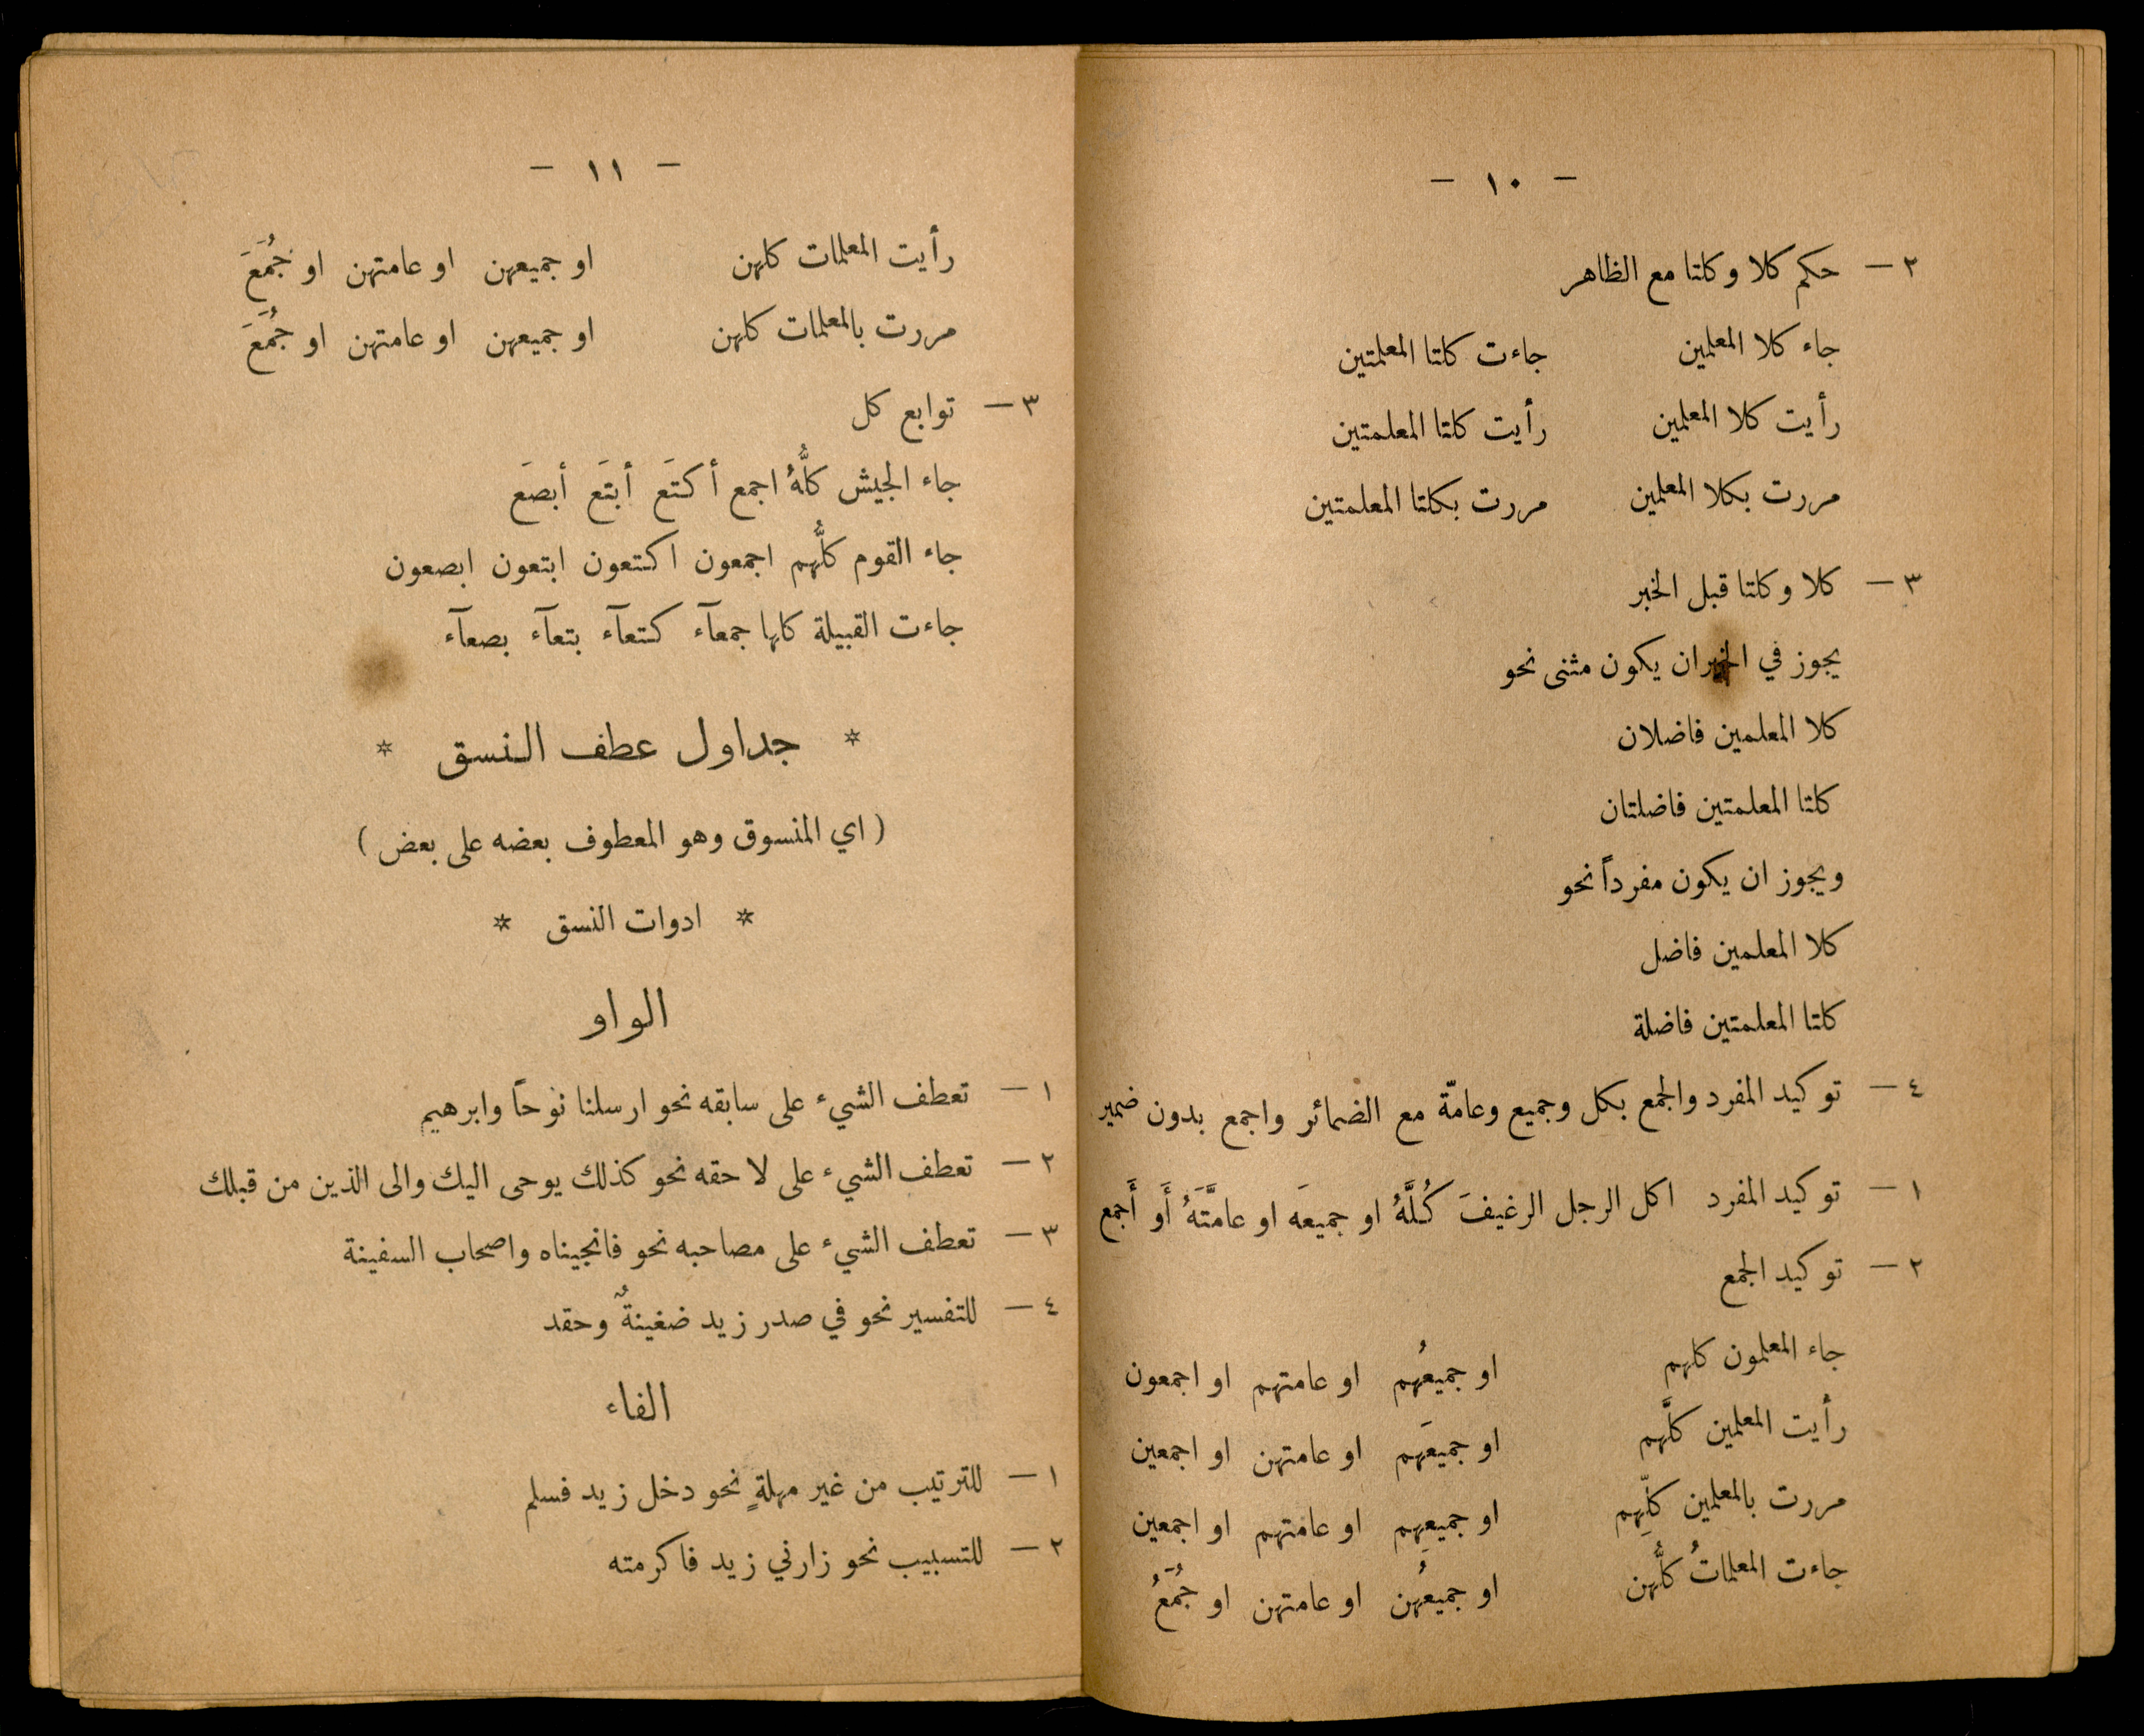 — ١٠ —
٢ — حكم كلا وكلتا مع الظاهر
جاء كلا المعلمين جاءت كلتا المعلمتين
رأيت كلا المعلمين رأيت كلتا المعلمتين
مررت بكلا المعلمين مررت بكلتا المعلمتين
٣ — كلا وكلتا قبل الخبر
يجوز في الخبر ان يكون مثنى نحو
كلا المعلمين فاضلان
كلتا المعلمتين فاضلتان
ويجوز ان يكون مفرداً نحو
كلا المعلمين فاضل
كلتا المعلمتين فاضلة
٤ — توكيد المفرد والجمع بكل وجميع وعامّة مع الضمائر واجمع بدون ضمير
١ — توكيد المفرد اكل الرجل الرغيفَ كُلَّهُ او جميعَه او عامَّتَهُ أَو أَجمع
٢ — توكيد الجمع
جاء المعلمون كلهم او جميعُهم او عامتهم او اجمعون
رأيت المعلمين كلَّهم او جميعَهم او عامتهن او اجمعين
مررت بالمعلمين كلِّهِم او جميعِهم او عامتهم او اجمعين
جاءت المعلماتُ كلُّهن او جميعُهن او عامتهن او جُمَعُ
— ١١ —
رأيت المعلمات كلهن او جميعهن او عامتهن او جُمَعَ
مررت بالمعلمات كلهن او جميعهن او عامتهن او جُمَعَ
٣ — توابع كل
جاء الجيش كلُّهُ اجمع أكتَع أبتَع أبصَع
جاء القوم كلُّهم اجمعون اكتعون ابتعون ابصعون
جاءت القبيلة كلها جمعآء كتعآء بتعآء بصعآء
* جداول عطف النسق *
( اي المنسوق وهو المعطوف بعضه على بعض )
* ادوات النسق *
الواو
١ — تعطف الشيء على سابقه نحو ارسلنا نوحاً وابرهيم
٢ — تعطف الشيء على لاحقه نحو كذلك يوحى اليك والى الذين من قبلك
٣ — تعطف الشيء على مصاحبه نحو فانجيناه واصحاب السفينة
٤ — للتفسير نحو في صدر زيد ضغينةٌ وحقد
الفاء
١ — للترتيب من غير مهلةٍ نحو دخل زيد فسلم
٢ — للتسبيب نحو زارني زيد فاكرمته